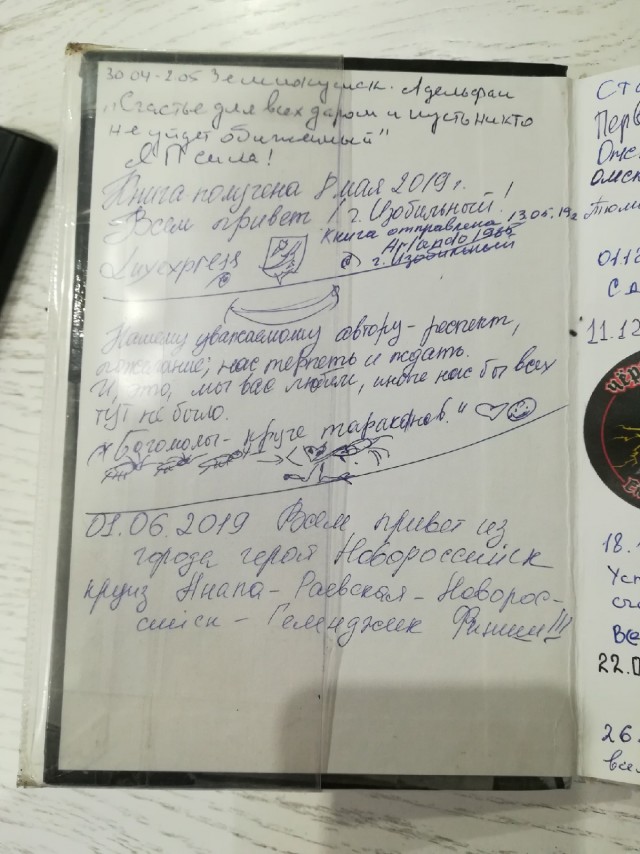 30.04-2.05 Земин Адельфан
„Счастье для всех даром и пусть никто
не уйдет обиженный"
АП сила!
Книга получена 8 мая 2019 г.
Всем привет! г. Изобильный!
Книга отправлена 13.05.19г
Arlando1986
г. Изобильный
Luxexpress
Нашему уважаемому автору - респект,
пожелание; нас терпеть и ждать.
И, это, мы вас любим, иначе нас бы всех
тут не было.
"Богомолы - круче тараканов."
01.06.2019 Всем привет из
города героя Новороссийск
круиз Анапа - Раевская - Новорос-
сийск - Геленджик Финиш!!!
Ста
Перв
Омск
Тюме
0112
С д
11.12
18.
Уст
Все
22.П
26.
всем